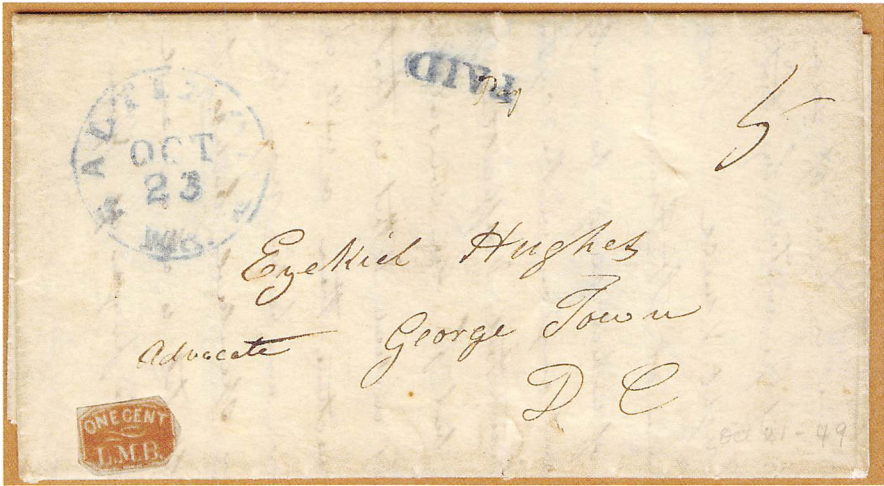 PAID
Pay
5
BALTIMORE
OCT
23
Md.
Ezekiel Hughes
Advocate
George Town
D C
ONE CENT
L.M.B.
Oct 21-49